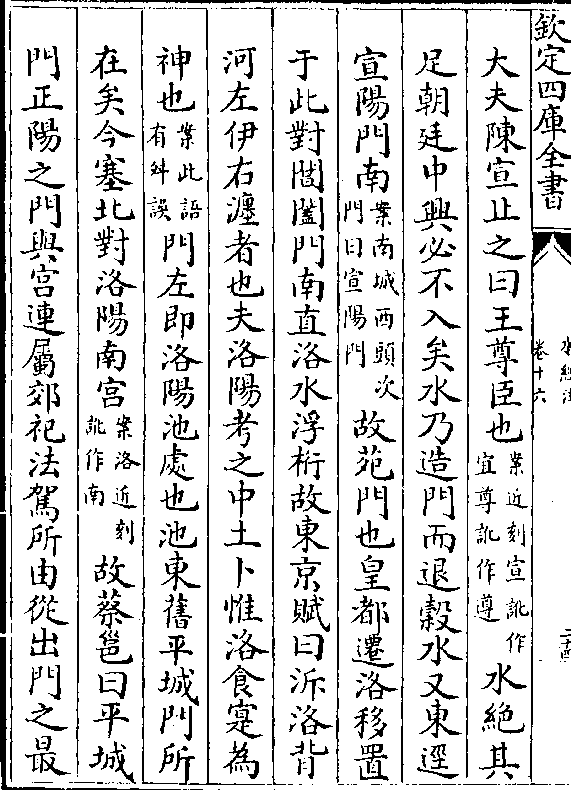 欽定四庫全書
卷十六
大夫陳宣止之曰王尊臣也案近刻宣訛作宜尊訛作遵水絶其
足朝廷中興必不入矣水乃造門而退糓水又東逕
宣陽門南案南城西頭次門曰宣陽門故苑門也皇都遷洛移置
于此對閶闔門南直洛水浮桁故東京賦曰泝洛背
河左伊右瀍者也夫洛陽考之中土卜惟洛食寔為
神也案此語有舛誤門左即洛陽池處也池東舊平城門所
在矣今塞北對洛陽南宫案洛近刻訛作南故蔡邕曰平城
門正陽之門與宫連屬郊祀法駕所由從出門之最